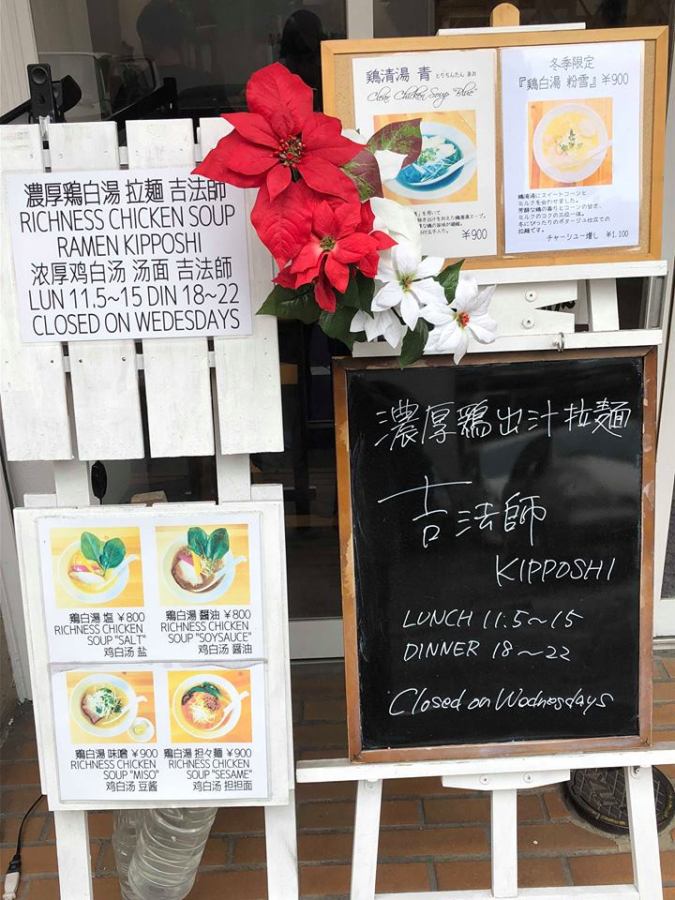 濃厚鶏白湯 拉麺 吉法師
RICHNESS CHICKEN SOUP
RAMEN KIPPOSHI
浓厚鸡白汤 汤面 吉法師
LUN 11.5~15 DIN 18~22
CLOSED ON WEDESDAYS
鶏清湯 青 とりちんたん あお
Clear Chicken Soup "Blue"
￥900
冬季限定
『鶏白湯 粉雪』￥900
鶏清湯にスイートコーンと
ミルクを合わせました。
芳醇な鶏の香りとコーンの甘さ、
ミルクのコクの三位一体。
冬にぴったりのポタージュ仕立ての
拉麺です。
チャーシュー増し ￥1,100
濃厚鶏出汁拉麺
吉法師
KIPPOSHI
LUNCH 11.5~15
DINNER 18~22
Closed on Wednesdays
鶏白湯 塩 ￥800
RICHNESS CHICKEN
SOUP "SALT"
鸡白汤 盐
鶏白湯 醤油 ￥800
RICHNESS CHICKEN
SOUP "SOYSAUCE"
鸡白汤 酱油
鶏白湯 味噌 ￥900
RICHNESS CHICKEN
SOUP "MISO"
鸡白汤 豆酱
鶏白湯 担々麺 ￥900
RICHNESS CHICKEN
SOUP "SESAME"
鸡白汤 担担面